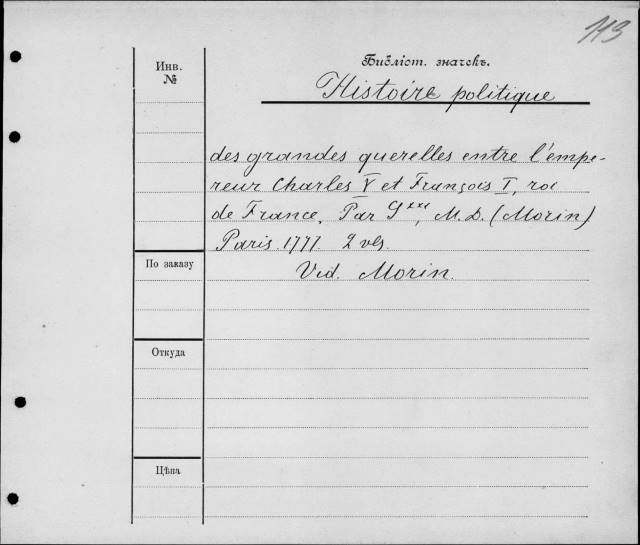 113
Инв.
№
Библіот. значекъ.
Histoire politique
des grandes querelles entre l'empe-
reur Charles V et François I, roi
de France. Par G***, M. D. (Morin)
Paris. 1777. 2 vls.
По заказу
Vid. Morin.
Откуда
Цѣна